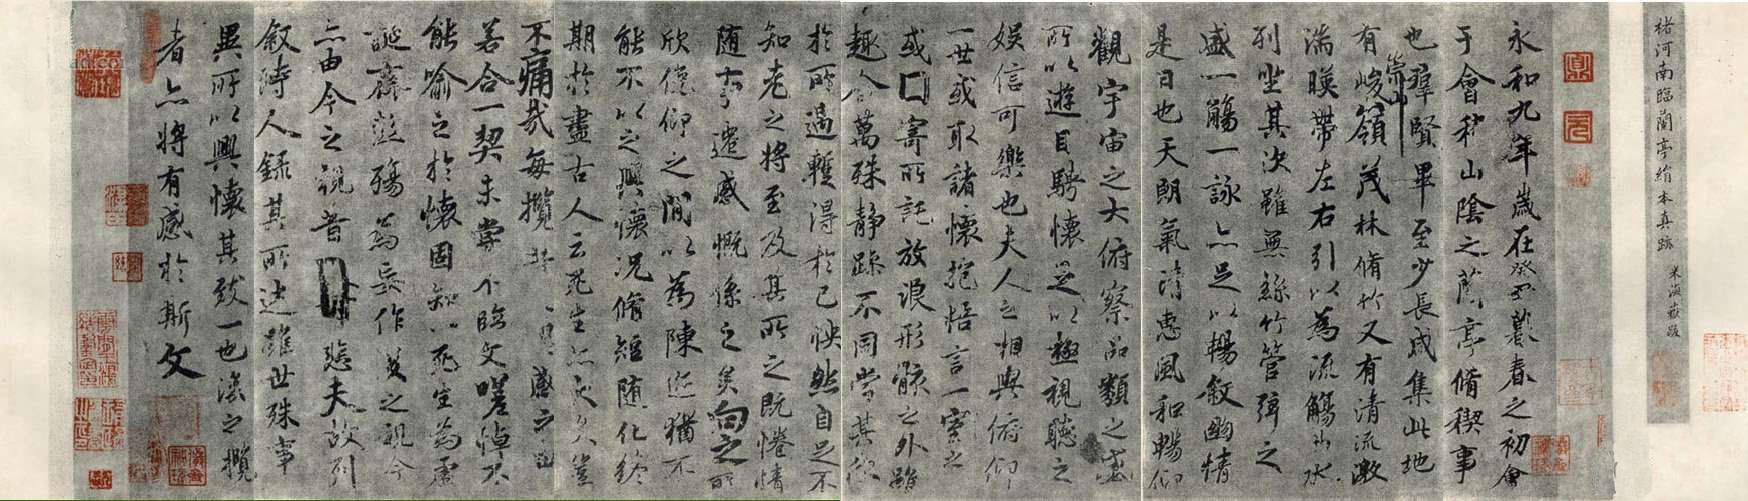 褚河南臨蘭亭絹本真跡 米海嶽跋
永和九年歲在癸丑暮春之初會
于會稽山陰之蘭亭脩稧事
也群賢畢至少長咸集此地
有崇山峻嶺茂林脩竹又有清流激
湍暎帶左右引以為流觴曲水
列坐其次雖無絲竹管弦之
盛一觴一詠亦足以暢敘幽情
是日也天朗氣清惠風和暢仰
觀宇宙之大俯察品類之盛
所以遊目騁懷足以極視聽之
娛信可樂也夫人之相與俯仰
一世或取諸懷抱悟言一室之
或寄所託放浪形骸之外雖
趣舍萬殊靜躁不同當其欣
於所遇暫得於己怏然自足不
知老之將至及其所之既惓情
隨事遷感慨係之矣向之所
欣俛仰之閒以為陳迹猶不
能不以之興懷況脩短隨化終
期於盡古人云死生亦大矣豈
不痛哉每攬昔感之由
若合一契未嘗不臨文嗟悼不
能喻之於懷固知一死生為虛
誕齊彭殤為妄作後之視今
亦由今之視昔悲夫故列
敘時人錄其所述雖世殊事
異所以興懷其致一也後之攬
者亦將有感於斯文